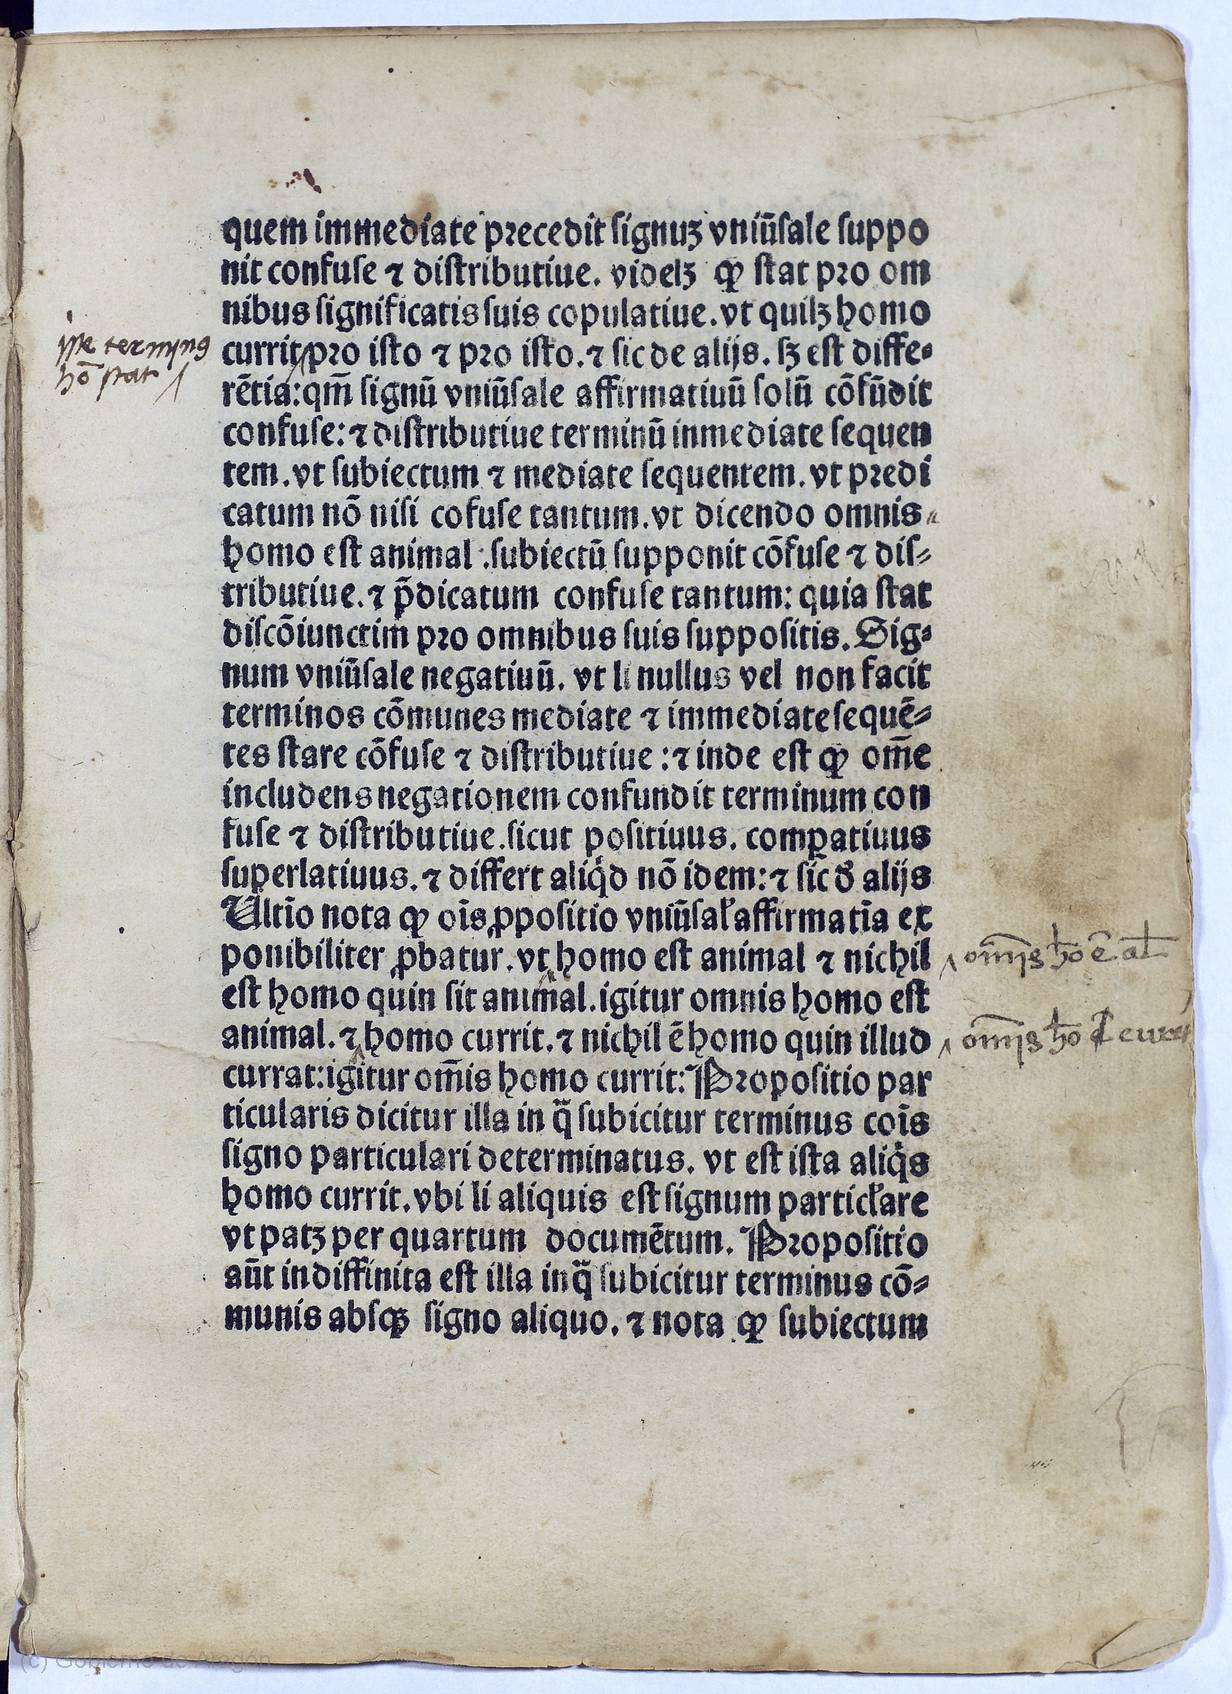 quem immediate precedit signuʒ vniūsale suppo
nit confuse ⁊ distributiue. videlʒ ꝙ stat pro om
nibus significatis suis copulatiue. vt quilʒ homo
iste terminꝰ
hō stat /
currit pro isto ⁊ pro isto. ⁊ sic de alijs. sʒ est diffe⸗
rētia: qm̄ signū vniūsale affirmatiuū solū cōfūdit
confuse: ⁊ distributiue terminū inmediate sequen
tem. vt subiectum ⁊ mediate sequentem. vt predi
catum nō nisi cofuse tantum. vt dicendo omnis
homo est animal : subiectū supponit cōfuse ⁊ dis⸗
tributiue. ⁊ p̄dicatum confuse tantum: quia stat
discōiunctim pro omnibus suis suppositis. Sig⸗
num vniūsale negatiuū. vt li nullus vel non facit
terminos cōmunes mediate ⁊ immediate sequē⸗
tes stare cōfuse ⁊ distributiue : ⁊ inde est ꝙ om̄e
includens negationem confundit terminum con
fuse ⁊ distributiue. sicut positiuus. comꝑatiuus
superlatiuus. ⁊ differt aliq̇d nō idem: ⁊ sic ð alijs
Ultīo nota ꝙ oīs ꝓpositio vniūsaƚ affirmatīa ex
ponibiliter ꝓbatur. vt homo est animal ⁊ nichil
om̄is hō ē aƚ
est homo quin sit animal. igitur omnis homo est
animal. ⁊ homo currit. ⁊ nichil ē homo quin illud
om̄is hō
currat: igitur om̄is homo currit: Propositio par
ticularis dicitur illa in q̄ subicitur terminus coīs
signo particulari determinatus. vt est ista aliq̇s
homo currit. vbi li aliquis est signum particƚare
vt patʒ per quartum documētum. Propositio
aūt indiffinita est illa in q̄ subicitur terminus cō⸗
munis absqꝫ signo aliquo. ⁊ nota ꝙ subiectum
(c) Gobierno de Aragón